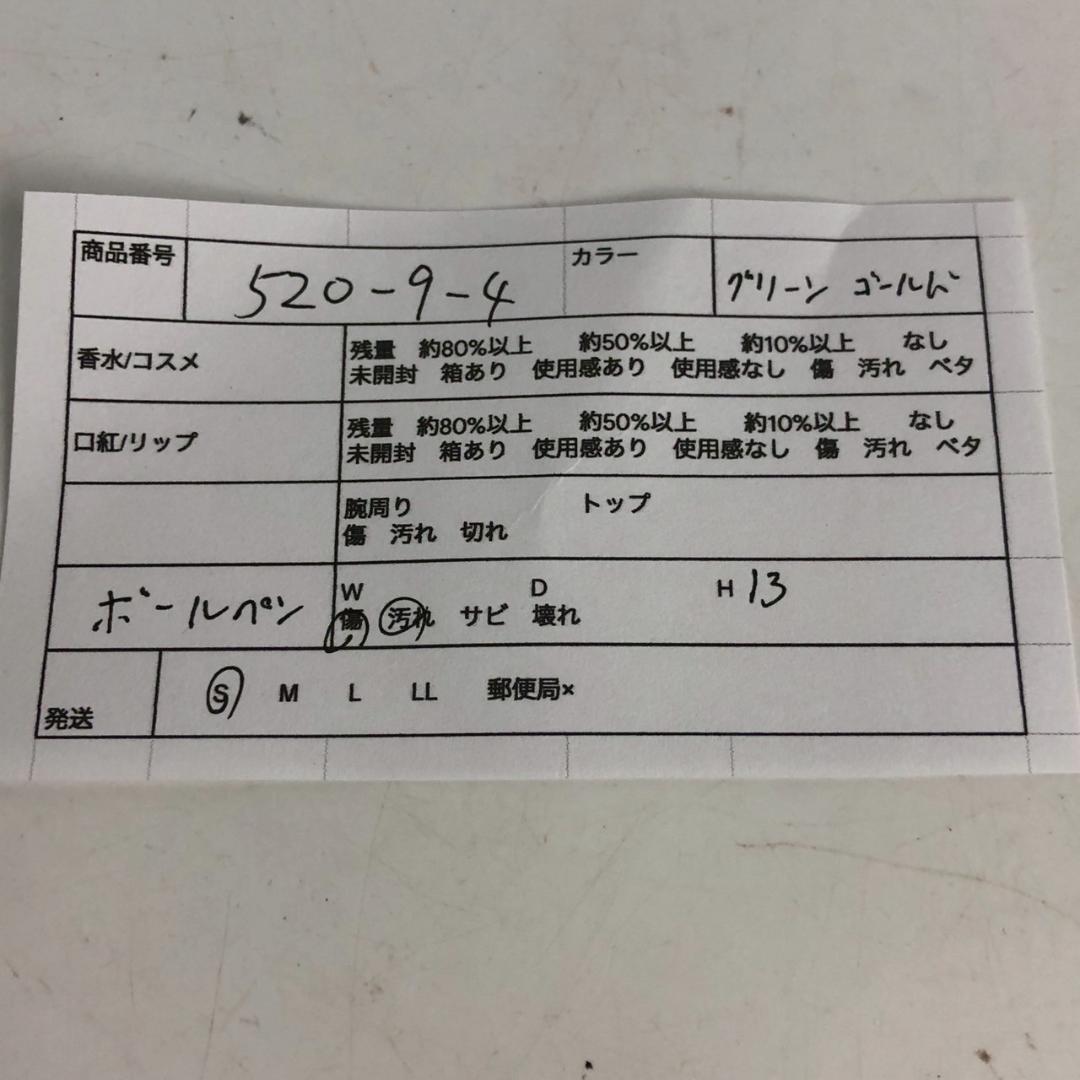 商品番号 520-9-4 カラー グリーン ゴールド
香水/コスメ 残量 約80%以上 約50%以上 約10%以上 なし
未開封 箱あり 使用感あり 使用感なし 傷 汚れ ベタ
口紅/リップ 残量 約80%以上 約50%以上 約10%以上 なし
未開封 箱あり 使用感あり 使用感なし 傷 汚れ ベタ
腕周り トップ
傷 汚れ 切れ
ボールペン W D H 13
傷 汚れ サビ 壊れ
発送 S M L LL 郵便局×